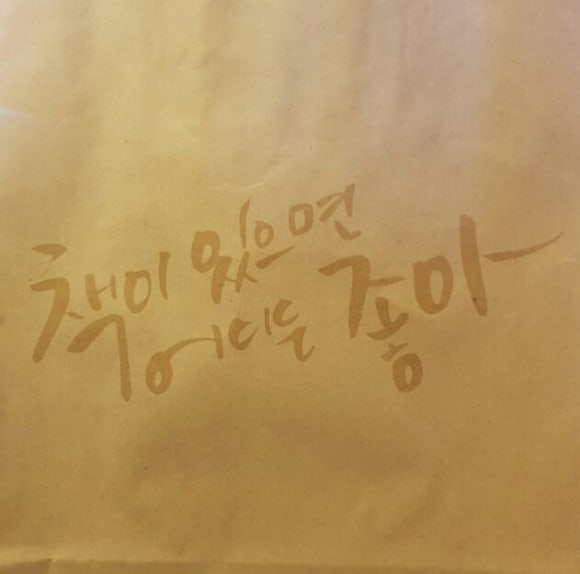 책이 있으면
어디든 좋아